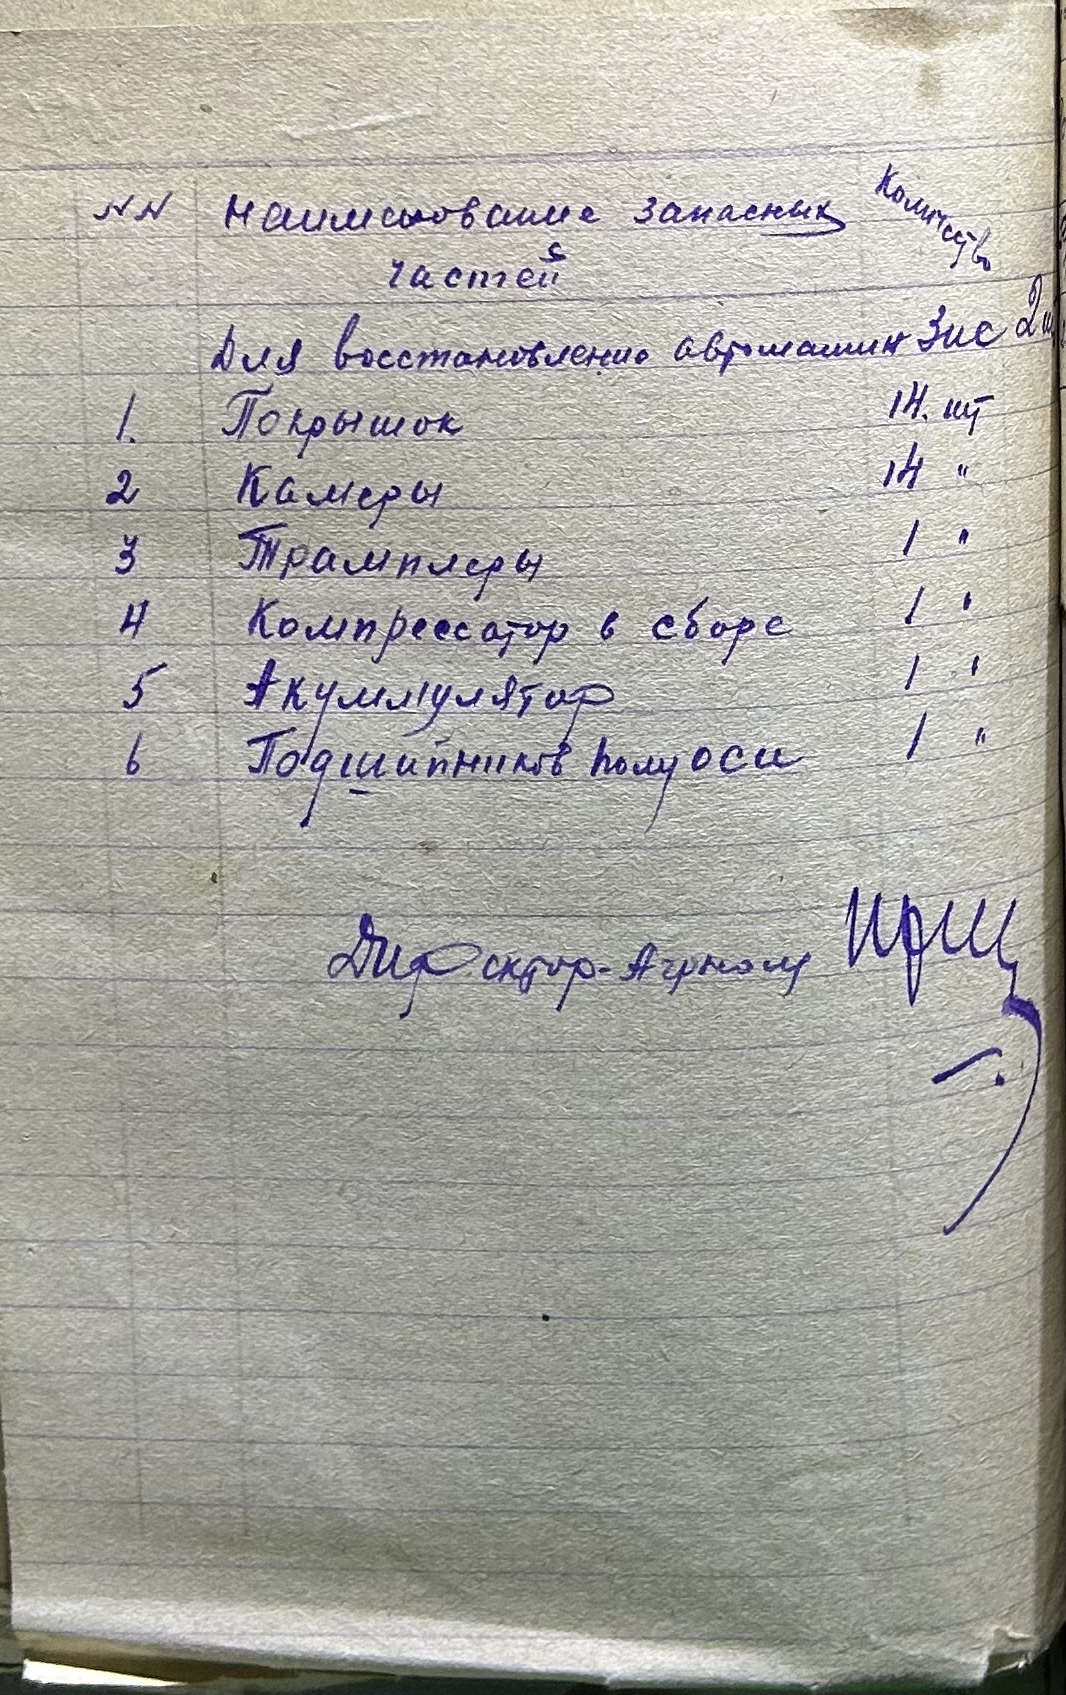 NN Наименование запасных Количество
частей
Для восстановлению автомашин Зис 2 шт
1. Покрышок 14. шт
2 Камеры 14 "
3 Трамплеры 1 "
4 Компрессатор в сборе 1 "
5 Акуммулятор 1 "
6 Подшипников полуоси 1 "
Директор-Агроном